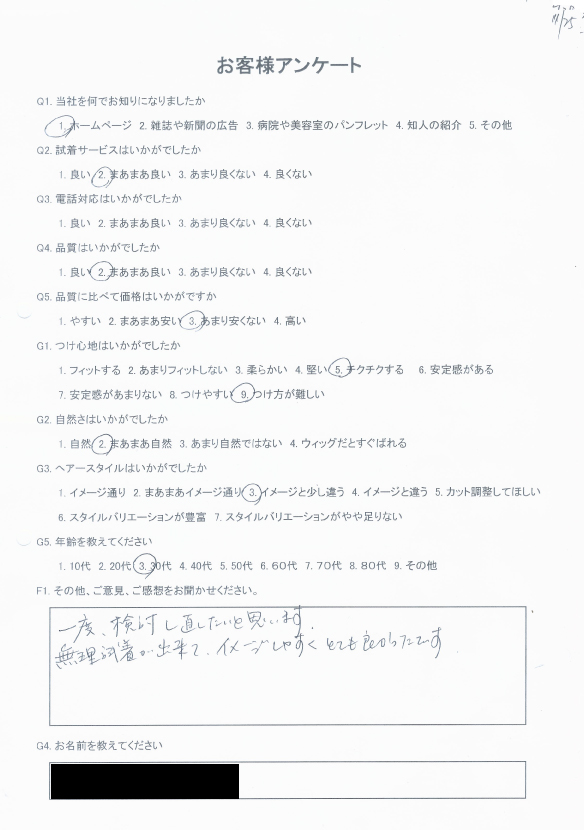 11/25
お客様アンケート
Q1. 当社を何でお知りになりましたか
1. ホームページ 2. 雑誌や新聞の広告 3. 病院や美容室のパンフレット 4. 知人の紹介 5. その他
Q2. 試着サービスはいかがでしたか
1. 良い 2. まあまあ良い 3. あまり良くない 4. 良くない
Q3. 電話対応はいかがでしたか
1. 良い 2. まあまあ良い 3. あまり良くない 4. 良くない
Q4. 品質はいかがでしたか
1. 良い 2. まあまあ良い 3. あまり良くない 4. 良くない
Q5. 品質に比べて価格はいかがですか
1. やすい 2. まあまあ安い 3. あまり安くない 4. 高い
G1. つけ心地はいかがでしたか
1. フィットする 2. あまりフィットしない 3. 柔らかい 4. 堅い 5. チクチクする 6. 安定感がある
7. 安定感があまりない 8. つけやすい 9. つけ方が難しい
G2. 自然さはいかがでしたか
1. 自然 2. まあまあ自然 3. あまり自然ではない 4. ウィッグだとすぐばれる
G3. ヘアースタイルはいかがでしたか
1. イメージ通り 2. まあまあイメージ通り 3. イメージと少し違う 4. イメージと違う 5. カット調整してほしい
6. スタイルバリエーションが豊富 7. スタイルバリエーションがやや足りない
G5. 年齢を教えてください
1. 10代 2. 20代 3. 30代 4. 40代 5. 50代 6. 60代 7. 70代 8. 80代 9. その他
F1. その他、ご意見、ご感想をお聞かせください。
一度、検討し直したいと思います.
無理試着が出来て、イメージしやすくとても良かったです
G4. お名前を教えてください